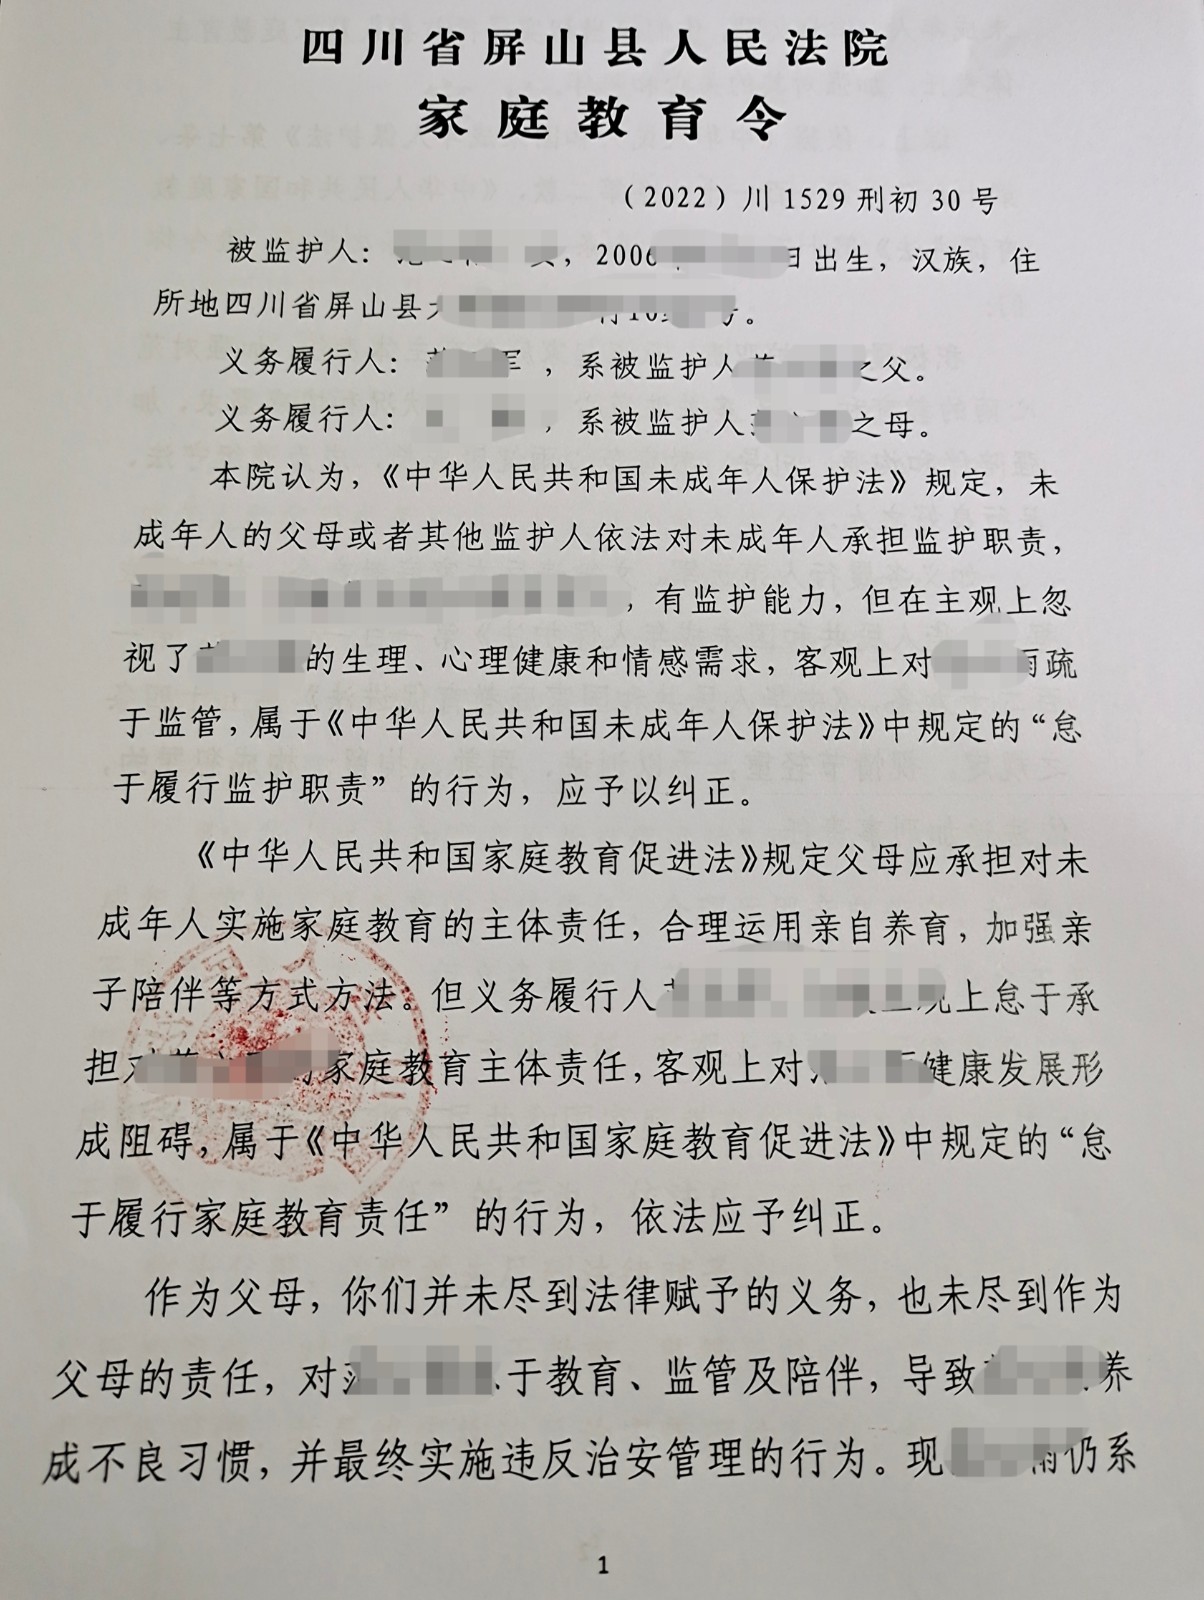 四川省屏山县人民法院
家庭教育令
（2022）川1529刑初30号
被监护人： ，2006 日出生，汉族，住
所地四川省屏山县 号。
义务履行人： 军，系被监护人 之父。
义务履行人： ，系被监护人 之母。
本院认为，《中华人民共和国未成年人保护法》规定，未
成年人的父母或者其他监护人依法对未成年人承担监护职责，
，有监护能力，但在主观上忽
视了 的生理、心理健康和情感需求，客观上对 雨疏
于监管，属于《中华人民共和国未成年人保护法》中规定的“怠
于履行监护职责”的行为，应予以纠正。
《中华人民共和国家庭教育促进法》规定父母应承担对未
成年人实施家庭教育的主体责任，合理运用亲自养育，加强亲
子陪伴等方式方法。但义务履行人 主观上怠于承
担对 的家庭教育主体责任，客观上对 健康发展形
成阻碍，属于《中华人民共和国家庭教育促进法》中规定的“怠
于履行家庭教育责任”的行为，依法应予纠正。
作为父母，你们并未尽到法律赋予的义务，也未尽到作为
父母的责任，对 于教育、监管及陪伴，导致 养
成不良习惯，并最终实施违反治安管理的行为。现 雨仍系
1